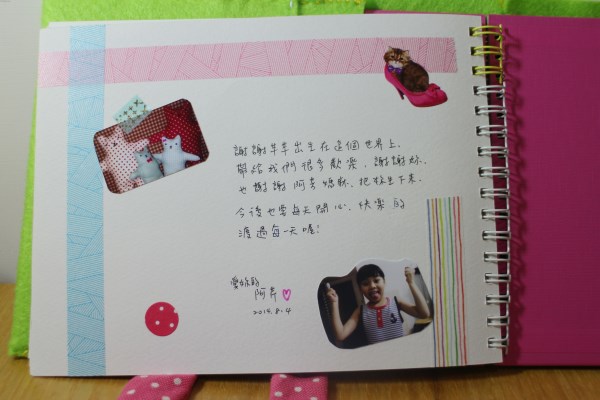 謝謝芊芊出生在這個世界上.
帶給我們很多歡樂.謝謝妳.
也謝謝阿芳媽咪.把妳生下來.
今後也要每天開心.快樂的
渡過每一天喔!
愛妳的
阿芳
2015.8.4